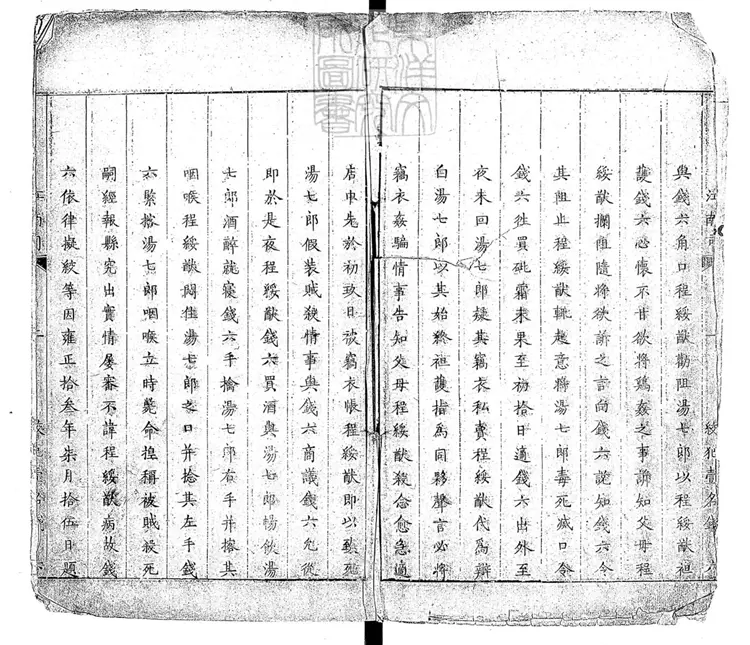 江南司
絞犯壹名錢六
與錢六角口程綏猷勸阻湯七郎以程綏猷袒
護錢六心懷不甘欲將鷄姦之事訴知父母程
綏猷攔阻隨將欲訴之言向錢六說知錢六令
其阻止程綏猷輒起意將湯七郎毒死滅口令
錢六往買砒霜未果至初拾日適錢六出外至
夜未回湯七郎疑其竊衣私賣程綏猷代為辯
白湯七郎以其始終袒護指為同夥聲言必將
竊衣姦騙情事告知父母程綏猷殺念愈急適
店中先於初玖日被竊衣帳程綏猷即以致死
湯七郎假裝賊殺情事與錢六商議錢六允從
即於是夜程綏猷錢六買酒與湯七郎暢飲湯
七郎酒醉就寢錢六手擒湯七郎右手并搭其
咽喉程綏猷悶住湯七郎之口并捻其左手錢
六緊搭湯七郎咽喉立時斃命捏稱被賊殺死
嗣經報縣究出實情屢審不諱程綏猷病故錢
六依律擬絞等因雍正拾叁年柒月拾伍日題